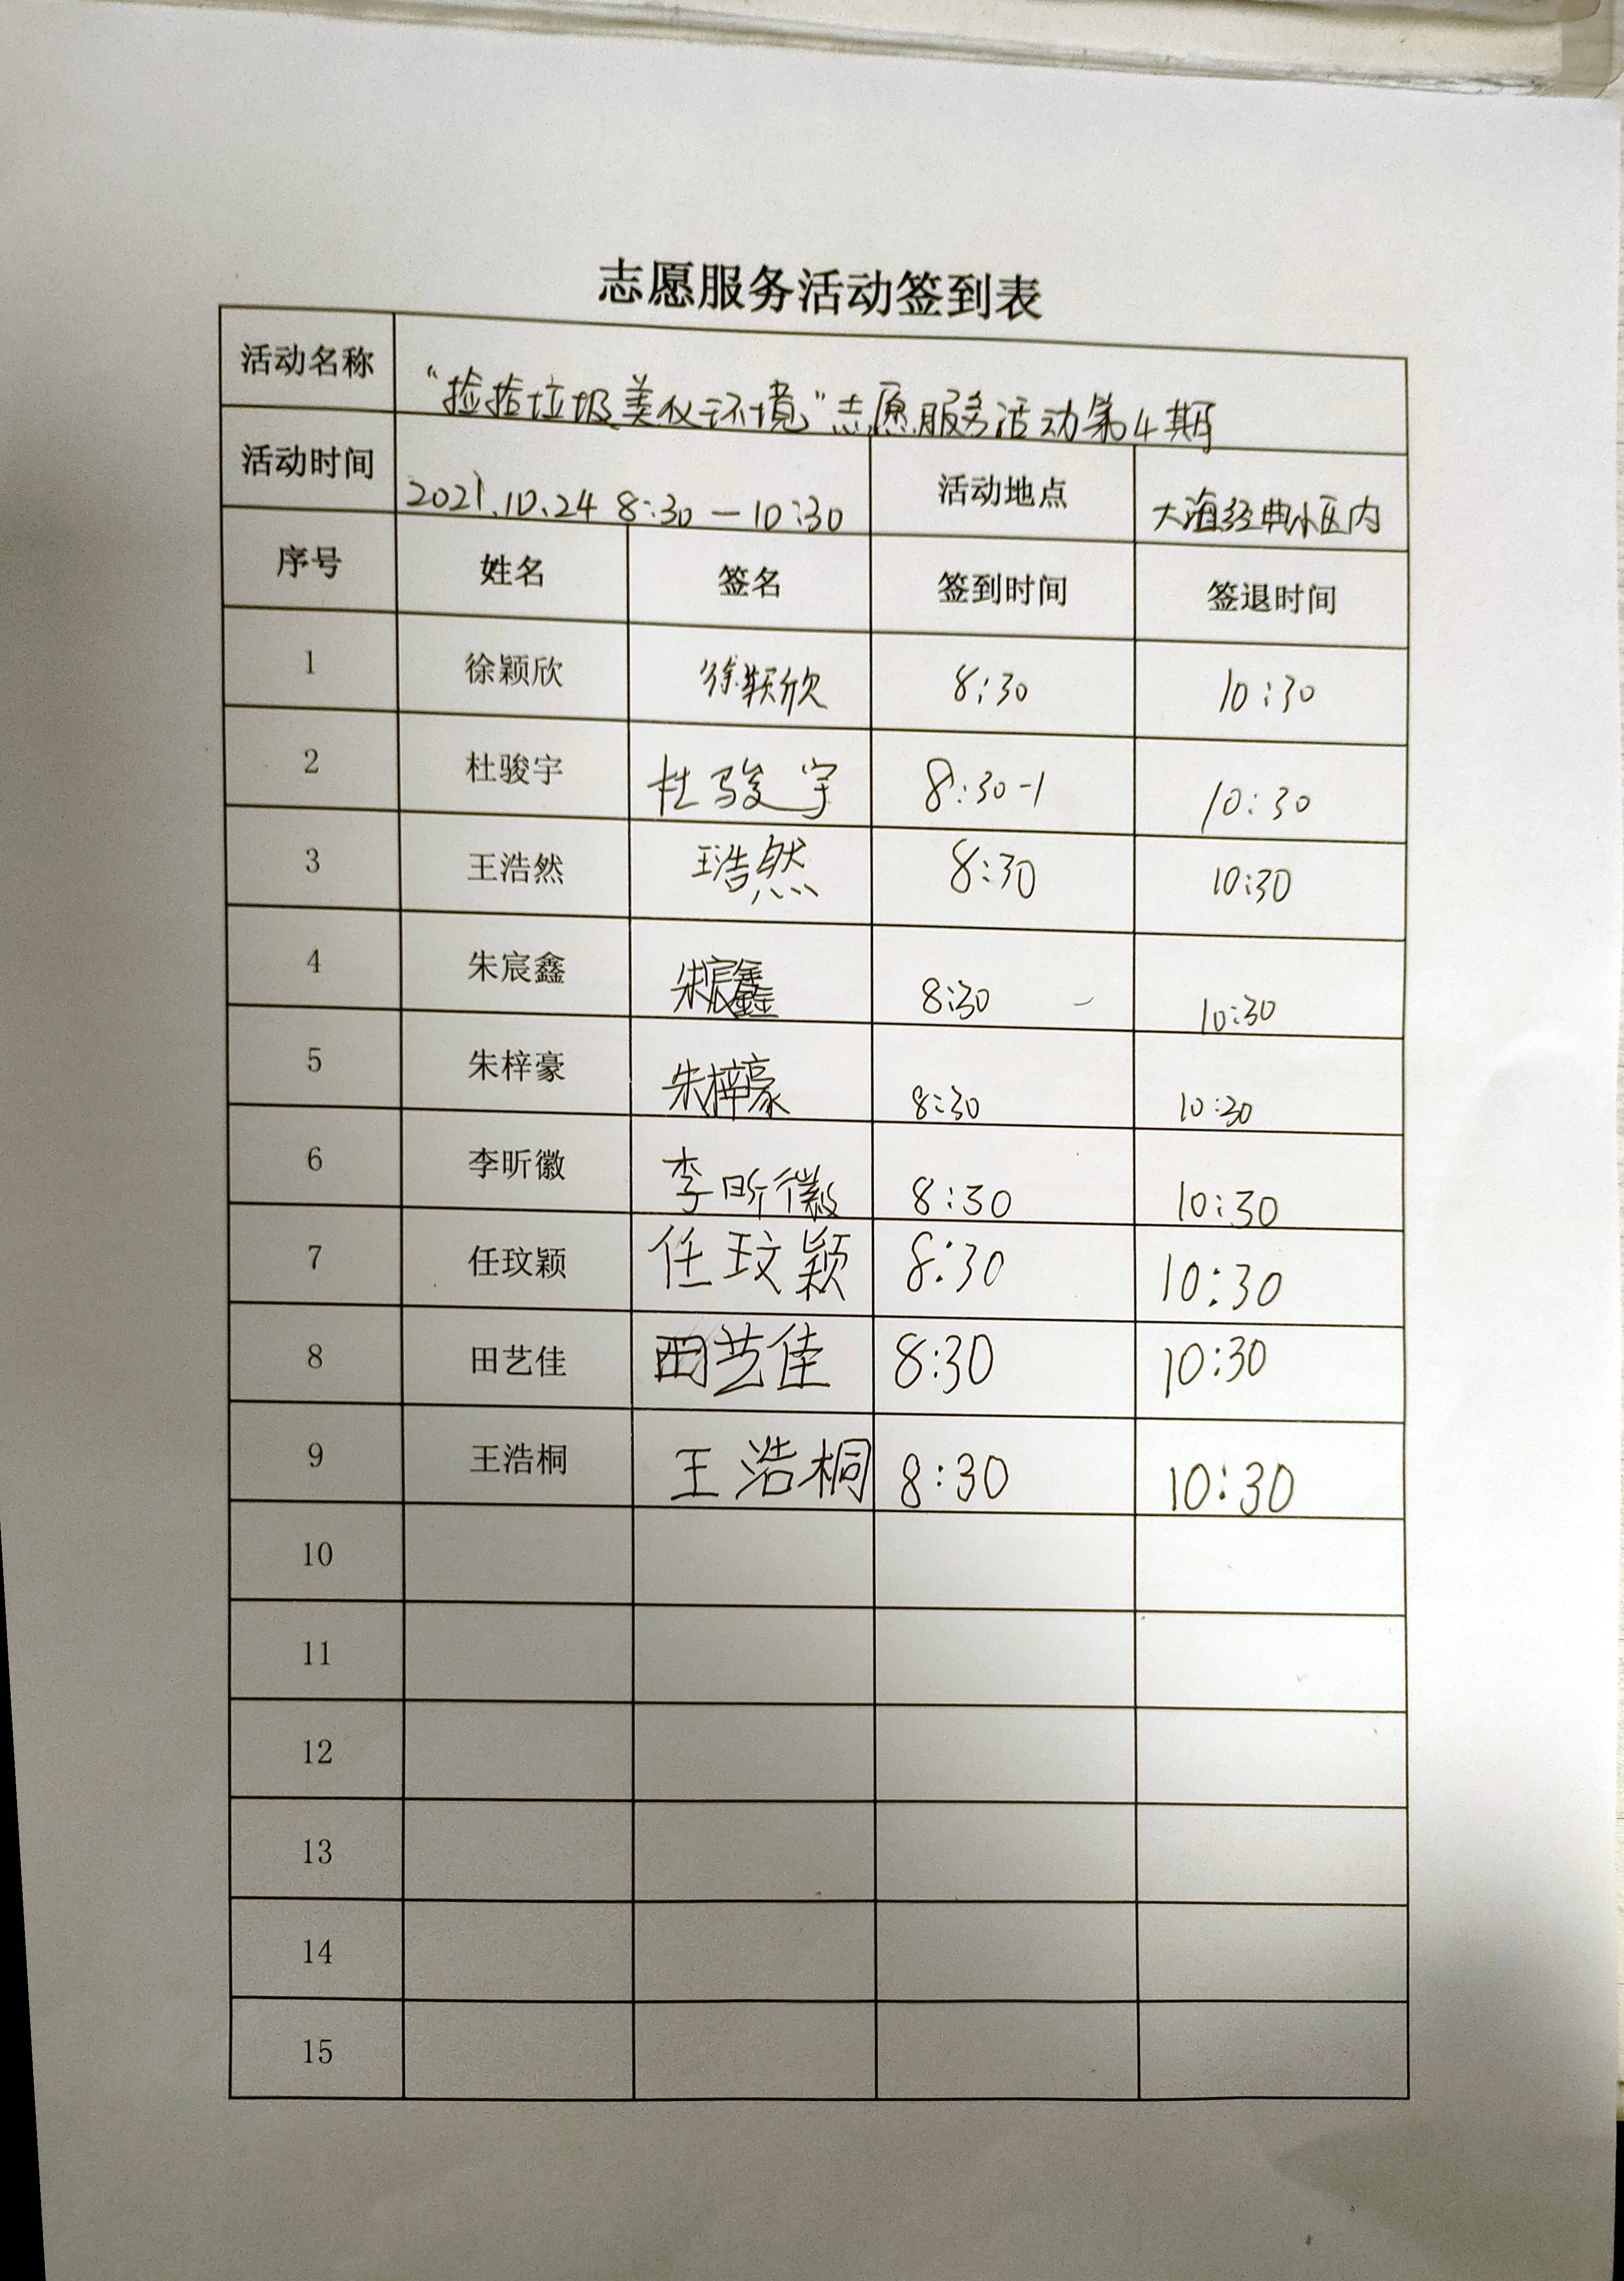 志愿服务活动签到表
活动名称 “捡拾垃圾美仪环境”志愿服务活动第4期
活动时间 2021.10.24 8:30—10:30 活动地点 大海经典小区内
序号 姓名 签名 签到时间 签退时间
1 徐颖欣 徐颖欣 8:30 10:30
2 杜骏宇 杜骏宇 8:30-1 10:30
3 王浩然 王浩然 8:30 10:30
4 朱宸鑫 朱宸鑫 8:30 10:30
5 朱梓豪 朱梓豪 8:30 10:30
6 李昕徽 李昕徽 8:30 10:30
7 任玟颖 任玟颖 8:30 10:30
8 田艺佳 田艺佳 8:30 10:30
9 王浩桐 王浩桐 8:30 10:30
10
11
12
13
14
15